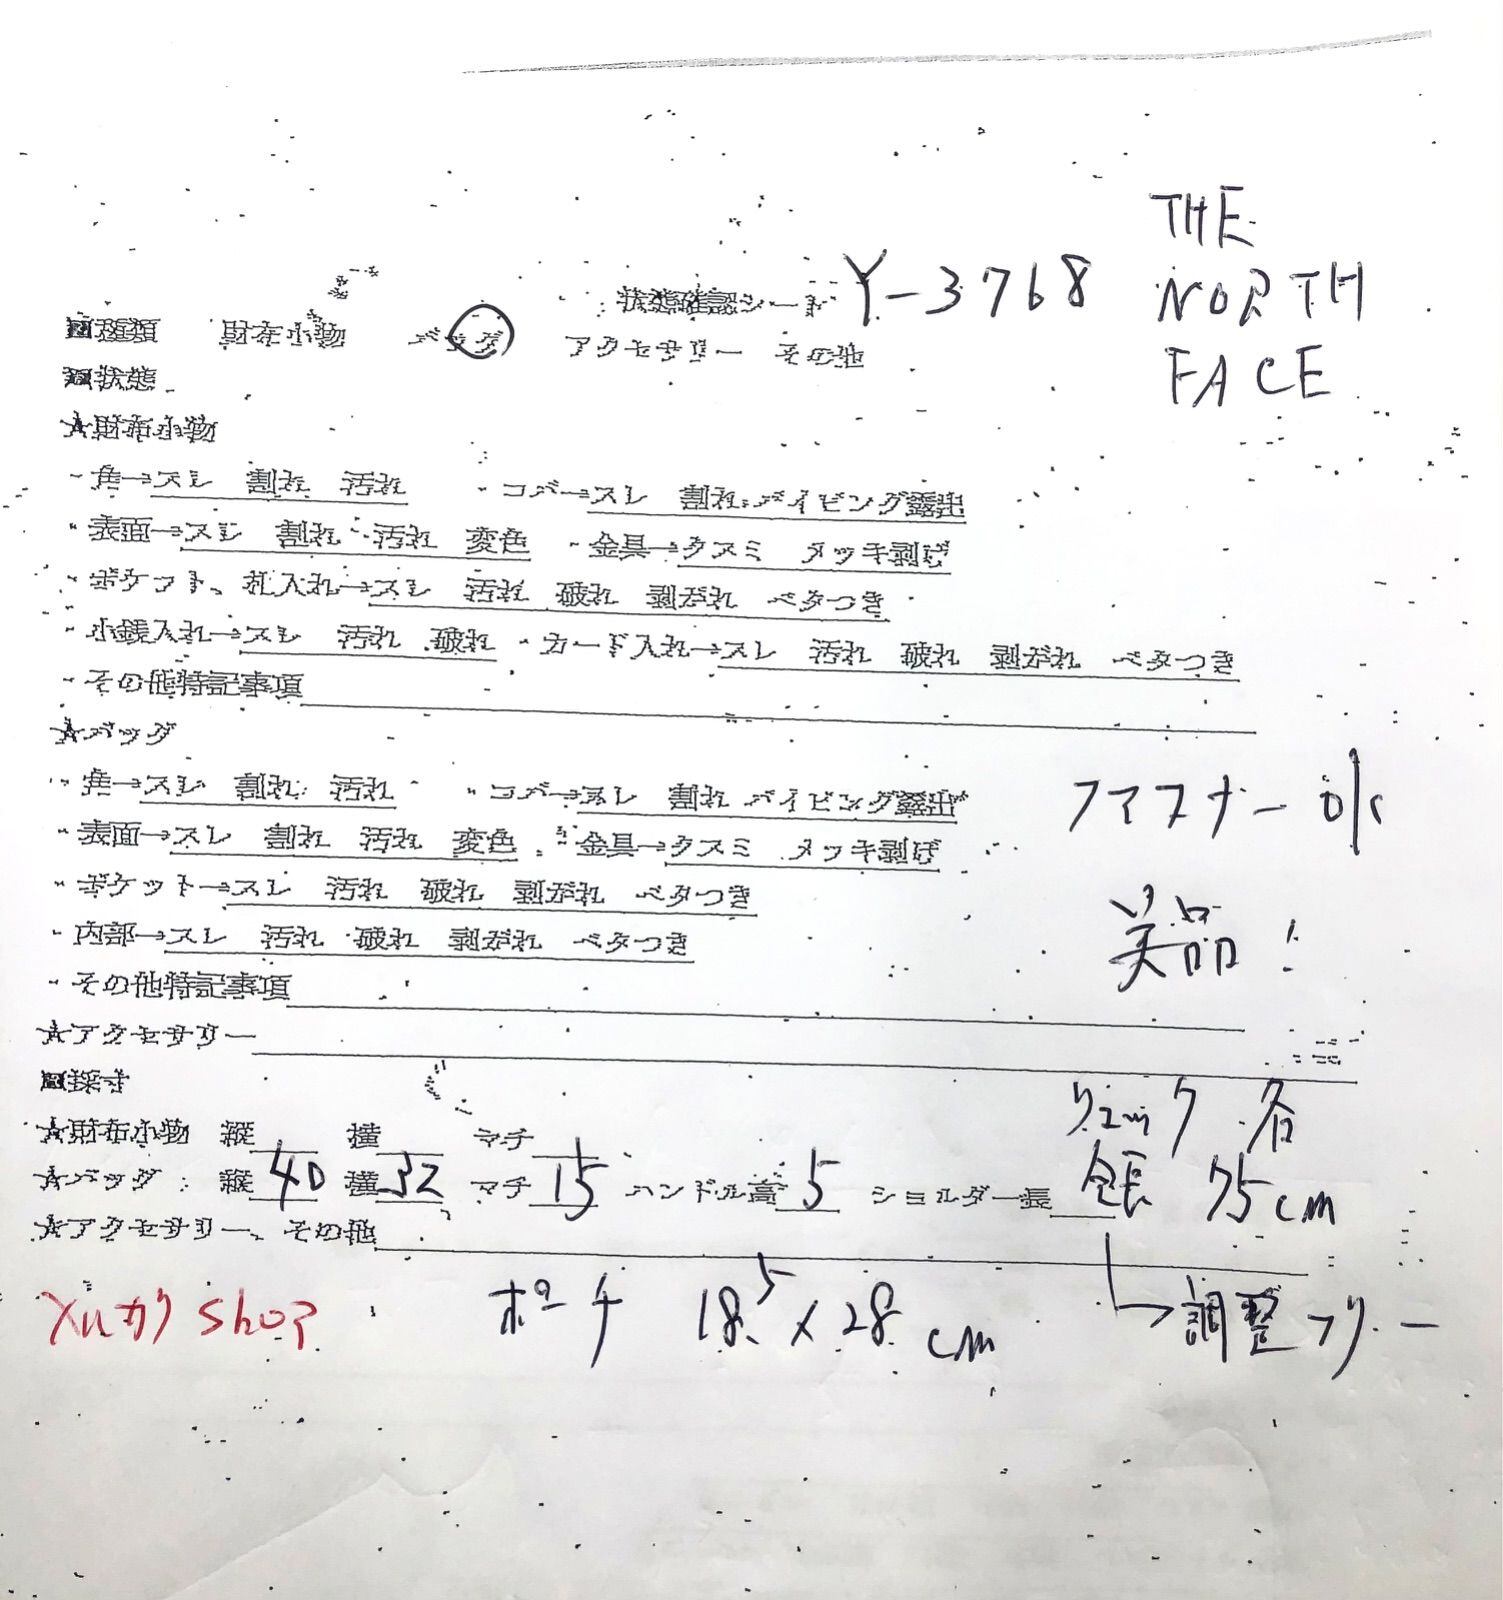 THE
NORTH
FACE
状態確認シート Y-3768
■種類 財布小物 バッグ アクセサリー その他
■状態
★財布小物
・角→スレ 割れ 汚れ ・コバ→スレ 割れ パイピング露出
・表面→スレ 割れ 汚れ 変色 ・金具→クスミ メッキ剥げ
・ポケット、札入れ→スレ 汚れ 破れ 剥がれ ベタつき
・小銭入れ→スレ 汚れ 破れ ・カード入れ→スレ 汚れ 破れ 剥がれ ベタつき
・その他特記事項
★バッグ
・角→スレ 割れ 汚れ ・コバ→スレ 割れ パイピング露出
ファスナー
・表面→スレ 割れ 汚れ 変色 ・金具→クスミ メッキ剥げ
・ポケット→スレ 汚れ 破れ 剥がれ ベタつき
・内部→スレ 汚れ 破れ 剥がれ ベタつき
美品!
・その他特記事項
★アクセサリー
■採寸
★財布小物 縦 横 マチ
リュック
★バッグ 縦 40 横 32 マチ 15 ハンドル高 5 ショルダー長 全長 75cm
★アクセサリー、その他
→調整フリー
ポーチ 18.5×28cm
shop